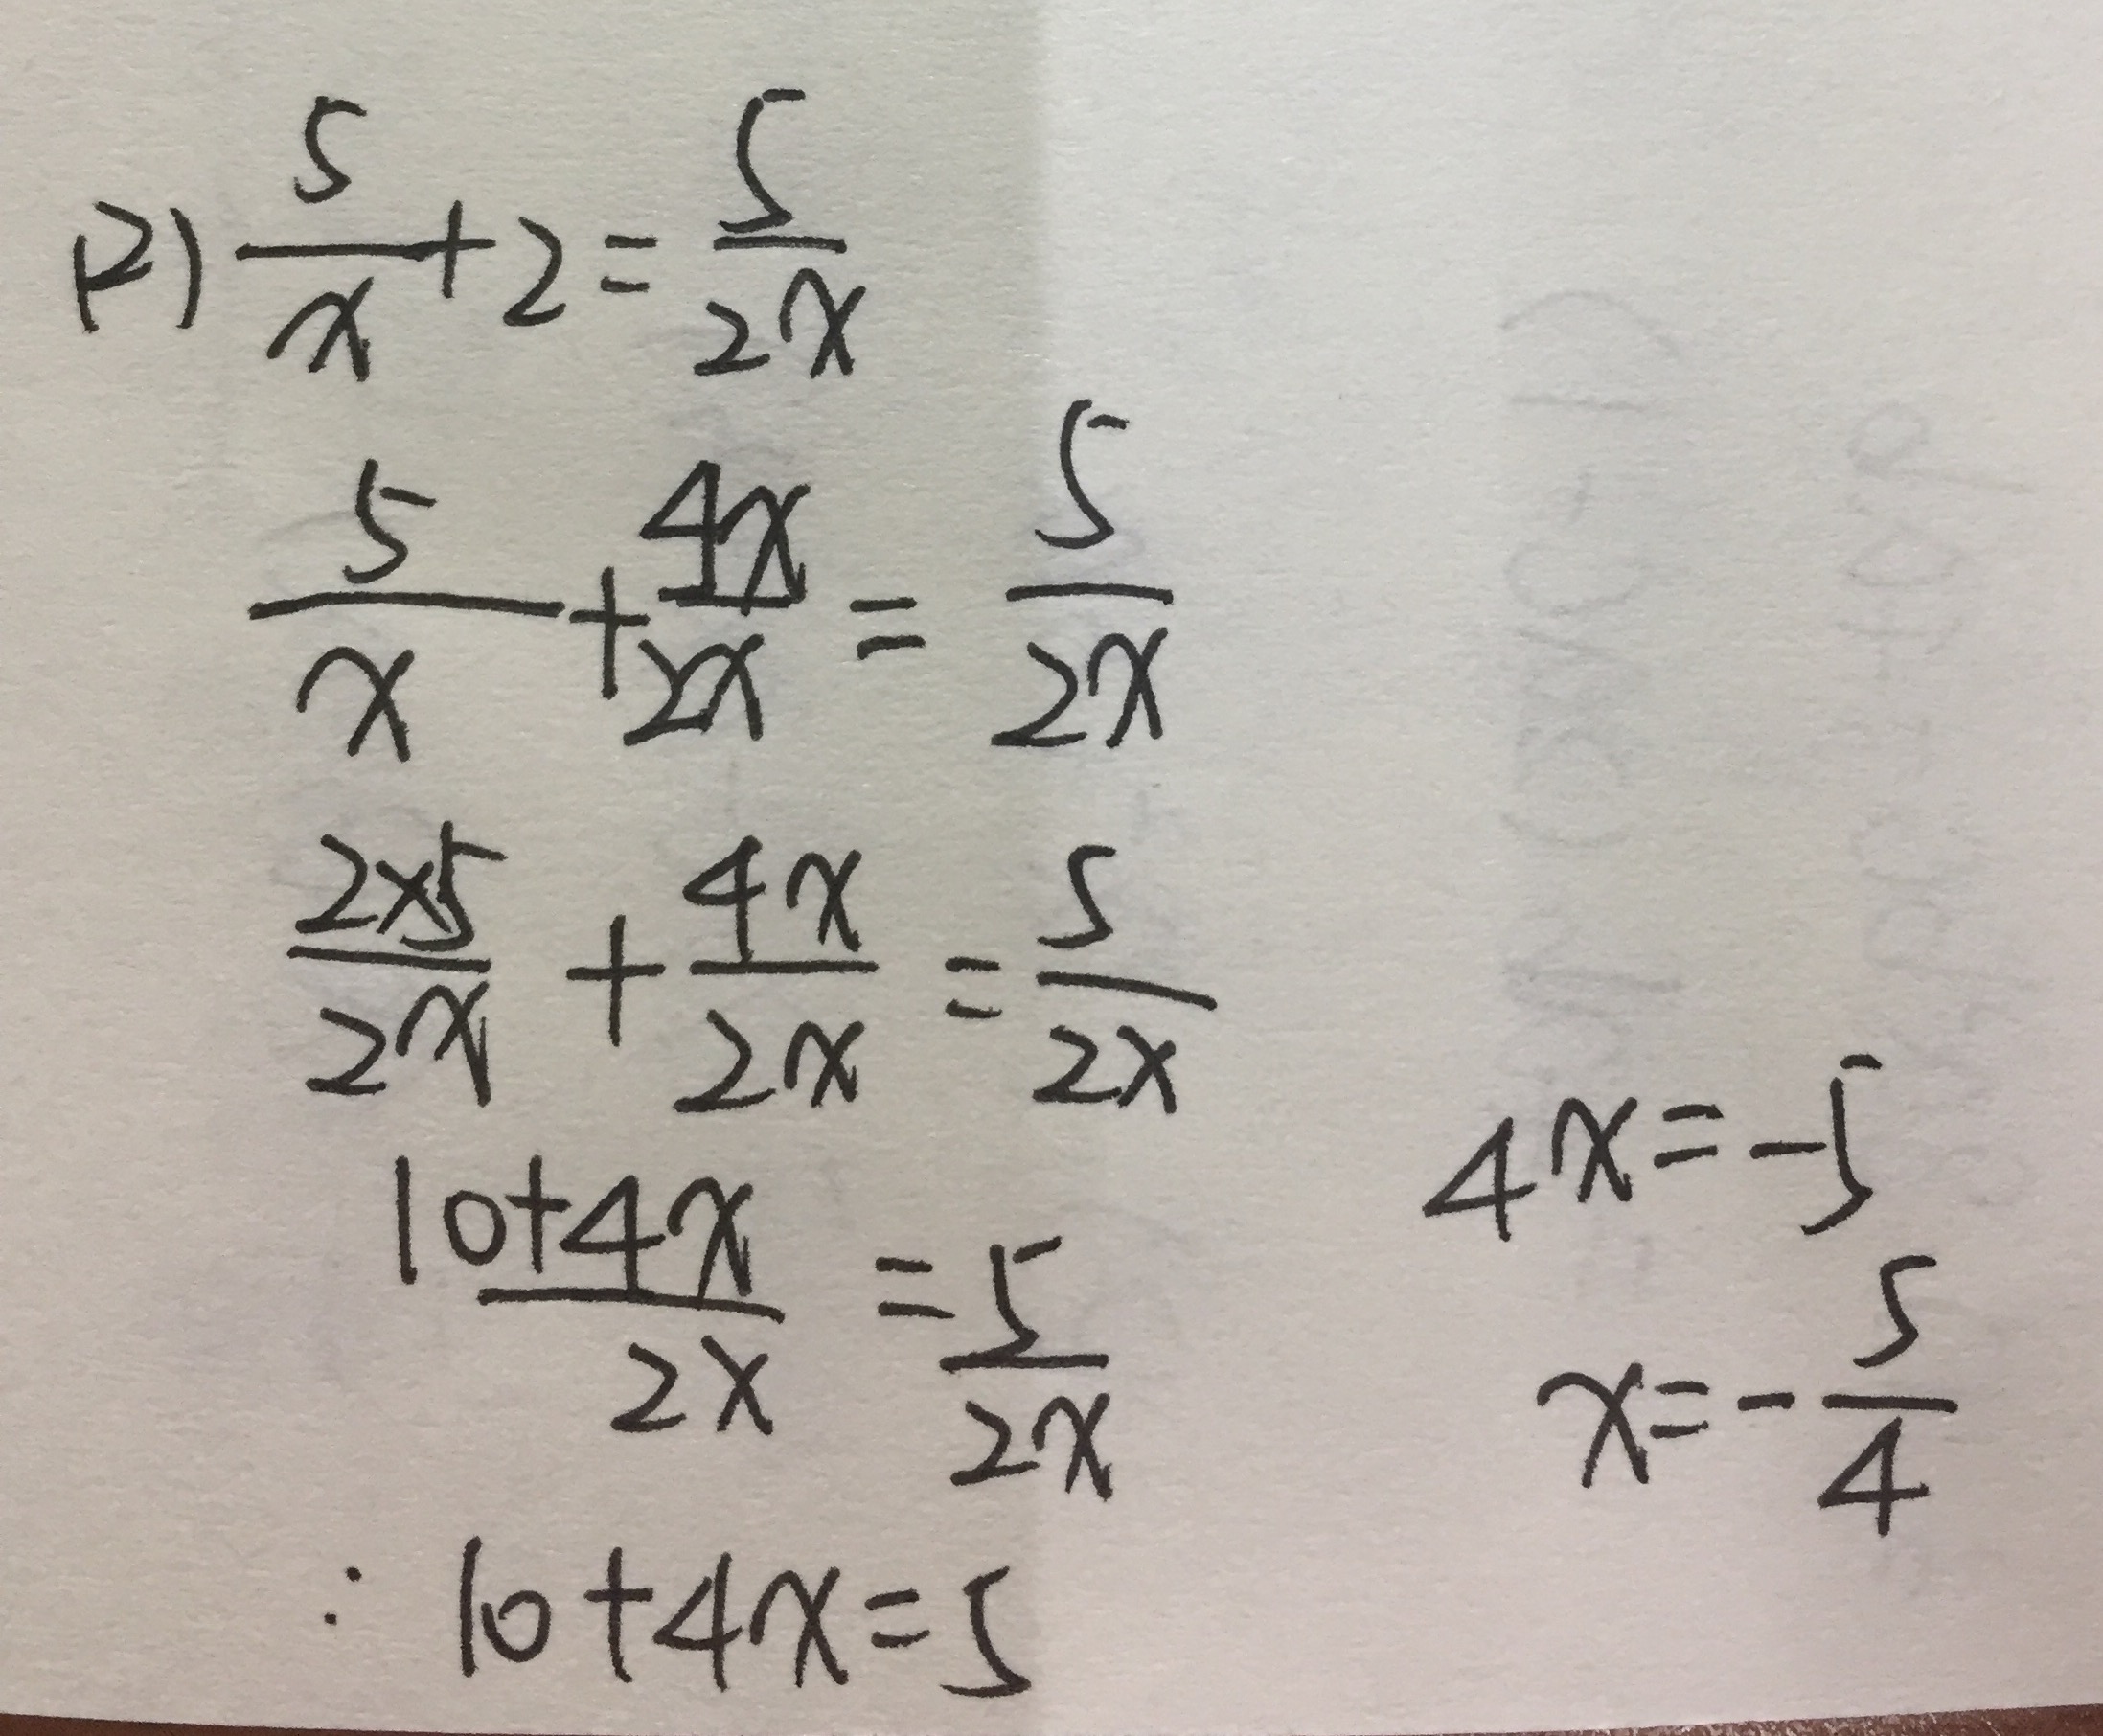 (2) 5/x + 2 = 5/2x
5/x + 4x/2x = 5/2x
2×5/2x + 4x/2x = 5/2x
10+4x/2x = 5/2x
: 10+4x=5
4x=-5
x=-5/4